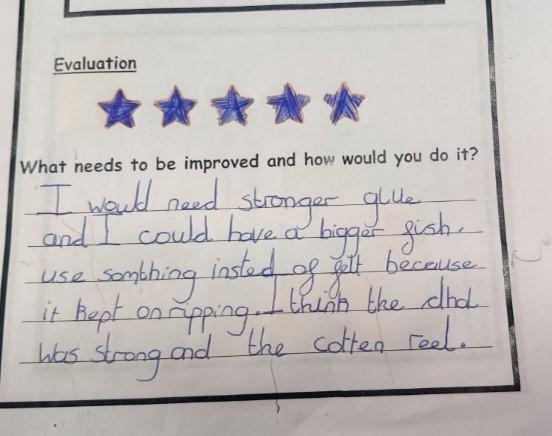 Evaluation
What needs to be improved and how would you do it?
I would need stronger glue
and I could have a bigger fish.
use somthing insted of felt because
it kept on ripping. I think the
was strong and the cotten reel.